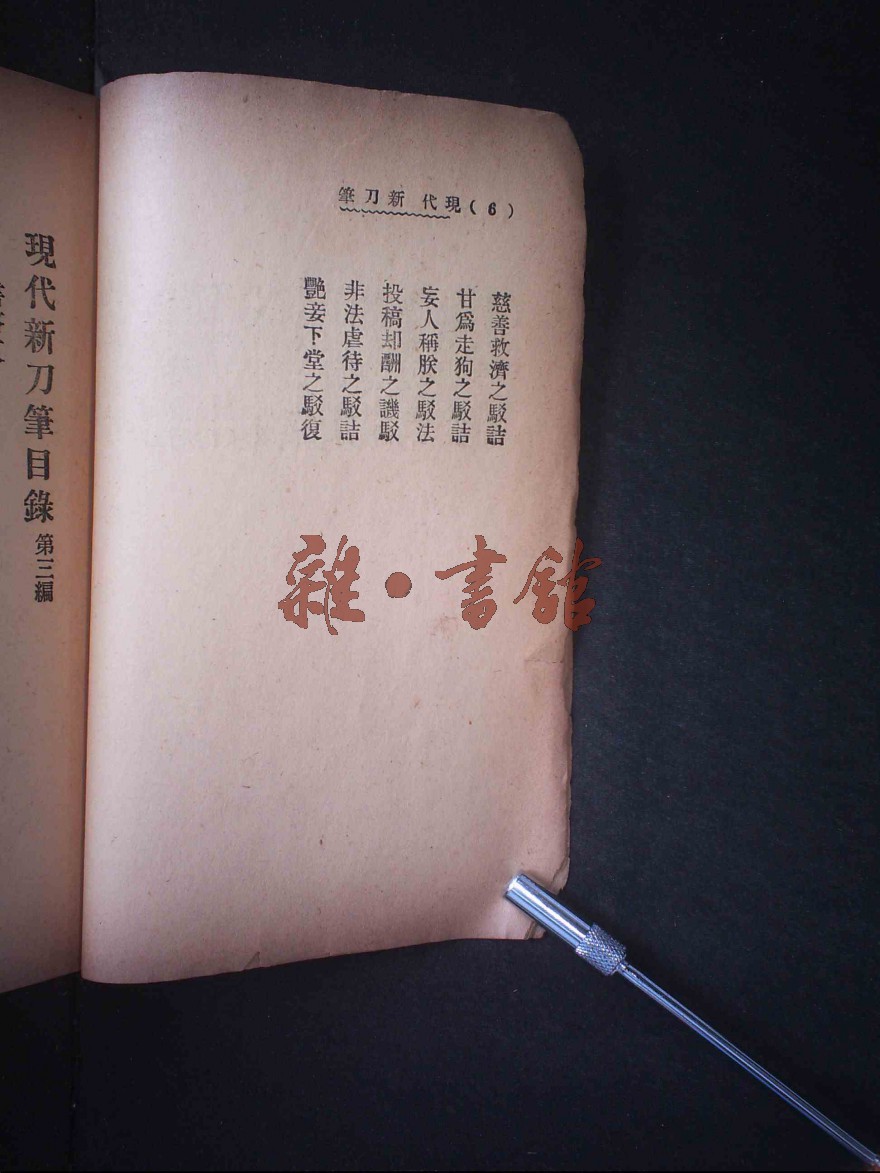 (6)現代新刀筆
慈善救濟之駁詰
甘爲走狗之駁詰
妄人稱朕之駁法
投稿却酬之譏駁
非法虐待之駁詰
艷妾下堂之駁復
現代新刀筆目錄 第三編
雜·書館